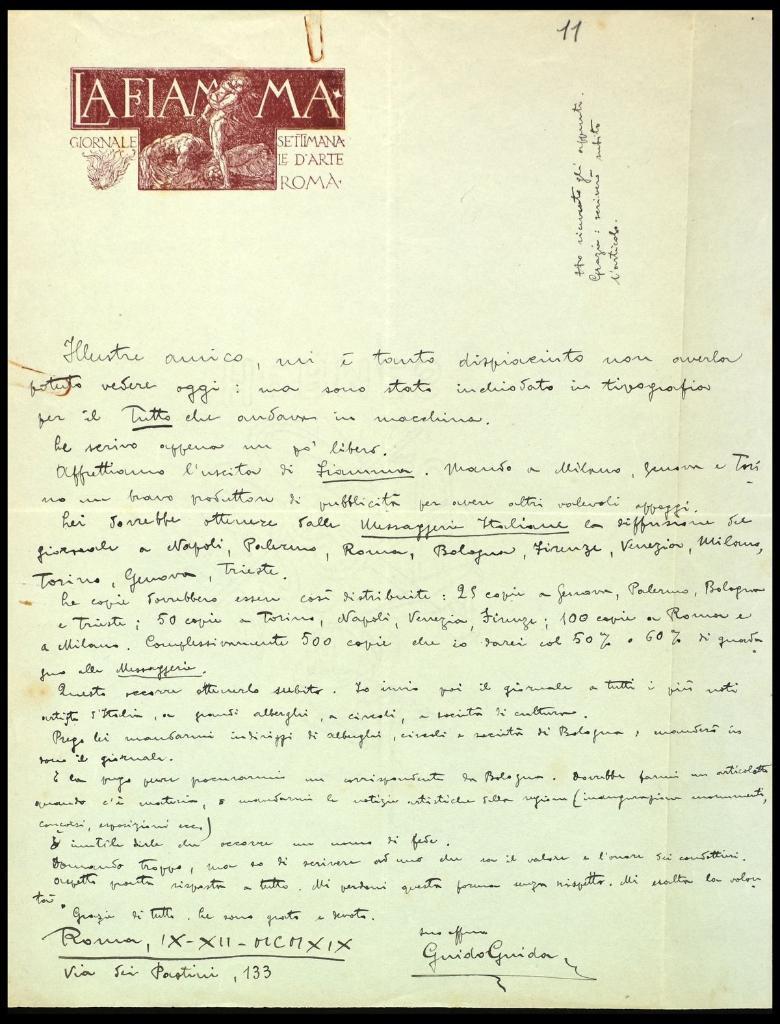 11
LA FIAMMA
GIORNALE SETTIMANA
LE D'ARTE
ROMA
Ho ricevuto gli appunti.
Grazie: scriverò subito
l'articolo.
Illustre amico, mi è tanto dispiaciuto non averla
potuto vedere oggi: ma sono stato inchiodato in tipografia
per il Tutto che andava in macchina.
Le scrivo appena un po' libero.
Affrettiamo l'uscita di Fiamma. Mando a Milano, Genova e Tori
no un bravo produttore di pubblicità per avere altri valevoli appoggi.
Lei dovrebbe ottenere dalle Messaggerie Italiane la diffusione del
giornale a Napoli, Palermo, Roma, Bologna, Firenze, Venezia, Milano,
Torino, Genova, Trieste.
Le copie dovrebbero essere così distribuite: 25 copie a Genova, Palermo, Bologna
e Trieste; 50 copie a Torino, Napoli, Venezia, Firenze; 100 copie a Roma e
a Milano. Complessivamente 500 copie che io darei col 50% o 60% di guada
gno alle Messaggerie.
Questo occorre ottenerlo subito. Io invio poi il giornale a tutti i più noti
artisti d'Italia, a grandi alberghi, a circoli, a società di cultura.
Prego lei mandarmi indirizzi di alberghi, circoli e società di Bologna, manderò in
dono il giornale.
E la prego pure procurarmi un corrispondente da Bologna. Dovrebbe farmi un articoletto
quando c'è materia, e mandarmi le notizie artistiche della regione (inaugurazione monumenti,
concorsi, esposizioni ecc.)
È inutile dirle che occorre un uomo di fede.
Domando troppo, ma so di scrivere ad uno che sa il valore e l'onore dei condottieri.
Aspetto pronta risposta a tutto. Mi perdoni questa forma senza rispetto. Mi esalta la volon
tà.
Grazie di tutto. Le sono grato e devoto.
Roma, IX-XII-MCMXIX
Via dei Pastini, 133
suo affmo
Guido Guida